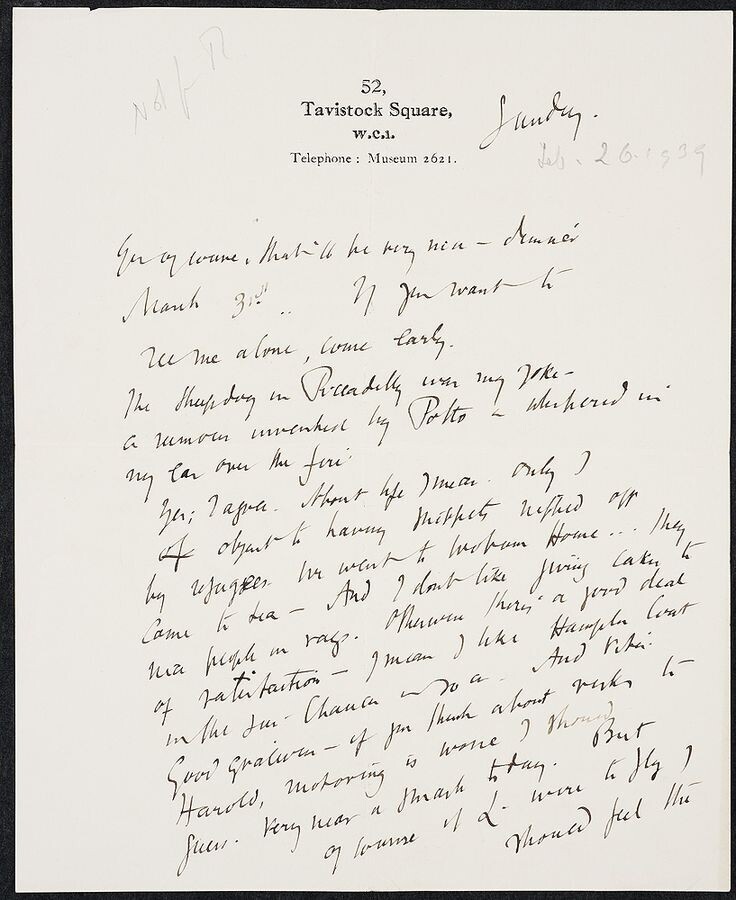 Not for
52,
Tavistock Square,
W.C.1.
Telephone: Museum 2621.
Sunday.
Feb. 26. 1939
Yes of course, that'll be very nice – dinner
March 31st.. If you want to
see me alone, come early.
The sheepdog in Piccadilly was my joke –
a rumour invented by Potto & whispered in
my ear over the fire.
Yes; I agree. About life I mean. Only I
object to having snippets nipped off
by refugees. We went to Woburn House... They
come to tea – And I dont like giving cakes to
nice people in rags. Otherwise there's a good deal
of satisfaction – I mean I like
in the sun. Chaucer & so on. And Vita.
Good gracious – if you think about risks to
Harold, motoring is worse I should
guess. Very near a smash today. But
of course if L. were to fly I
should feel the